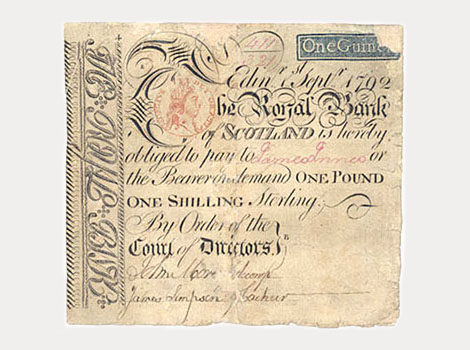 One Guine
Edinr. 1st Septr. 1792
The Royal Bank
of SCOTLAND is hereby
obliged to pay to James Innes or
the Bearer on demand ONE POUND
ONE SHILLING Sterling;
By Order of the
Court of Directors
James Simpson Cashier
THE ROYAL BANK